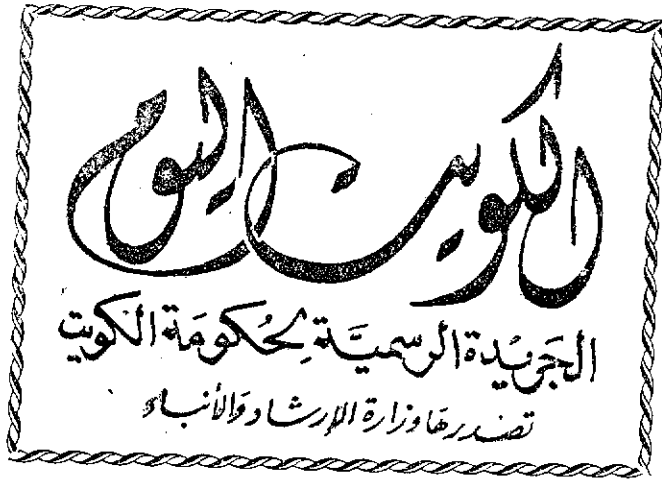 الكويت اليوم
الجَريدة الرسميَّة لحُكومَة الكويت
تصدرهَا وزارة الإرشاد وَالأنباء